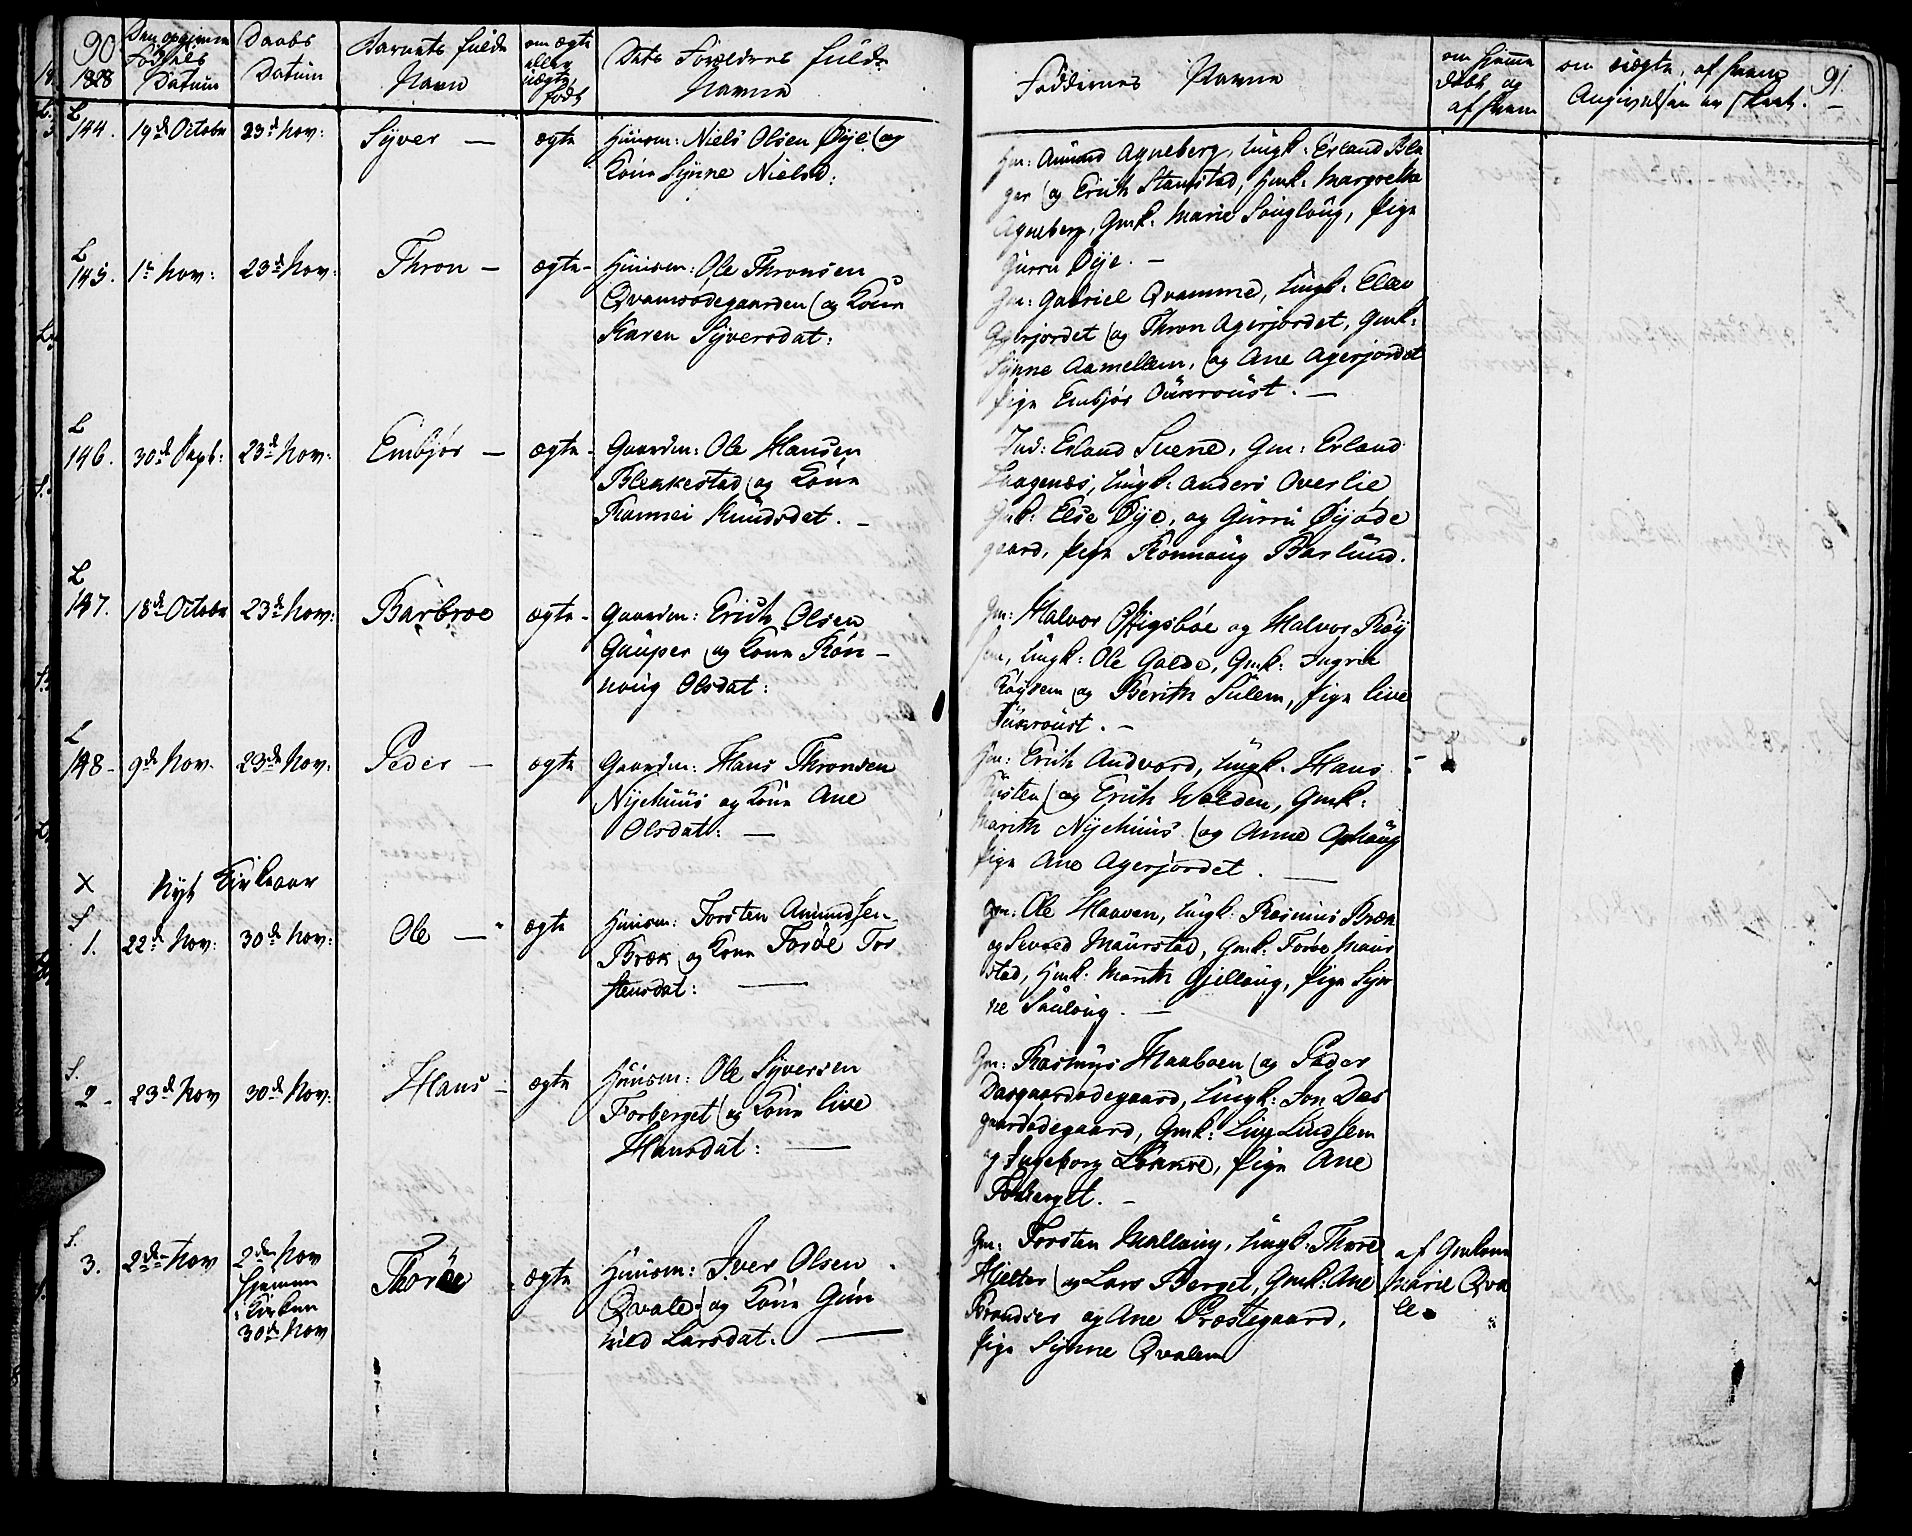 90
1828
Den opgivne
Fødsels
Datum
Daabs
Datum
Barnets fulde
Navn
om ægte
eller
uægte
født
Dets Forældres fulde
Navne
Faddernes Navne
om hjemme
døbt og
af hvem
om uægte, af hvem
Angivelsen er skeet.
91
L
144. 19de October 23de Nov: Syver — ægte Huusm: Niels Olsen Øye og
Kone Synne Nielsd:
Gm: Amund Agneberg, Ungk: Erland Bla
ger og Erich Stamstad, Hmk: Margretha
Agneberg, Gmk: Marie Sougloug, Pige
Gurru Øye. —
L
145. 1te Nov: 23de Nov: Thron — ægte — Huusm: Ole Thronsen
Qvamsødegaarden og Kone
Karen Syversdat:
Gm: Gabriel Qvamme, Ungk: Elev
Agerjordet og Thron Agerjordet, Gmk:
Synne Aamellem, og Ane Agerjordet
Pige Embjør
L
146. 30de Sept: 23de Nov: Embjør — ægte — Gaardm: Ole Hansen
Blekestad og Kone
Rannei Knudsdat. —
Ind: Erland Svene, Gm: Erland
Haagenæs, Ungk: Anders Overlie
Gmk: Else Øye, og Gurru Øyøde
gaard, Pige Rønnoug Barlund.
L
147. 18de October 23de Nov: Barbroe ægte — Gaardm: Erich Olsen
Gauper og Kone Røn —
noug Olsdat:
Gm: Halvor og Halvor Røy
sem, Ungk: Ole Galde, Gmk: Ingrid
Røysem og Berith Sulem, Pige Live
L
148 — 9de Nov. 23de Nov: Peder — ægte Gaardm: Hans Thronsen
Nyehuus og Kone Ane
Olsdat: —
Gm: Erich Andvord, Ungk. Hans
og Erich Walden, Gmk:
Marith Nyehuus og Anne Ophaug
Pige Ane Agerjordet. —
X Nyt Kirkeaar
S
1. 22de Nov: 30de Nov: Ole — ægte Huusm: Torsten Amundsen
Bræk og Kone Torøe Tor
stensdat: —
Gm: Ole Haaven, Ungk: Rasmus Bræk
og Sevald Maurstad, Gmk. Torøe Maur
stad, Hmk: Marith Gjelloug, Pige Syn
ne Sauloug. —
S.
2 — 23de Nov 30de Nov: Hans — ægte Huusm: Ole Syversen
Forberget og Kone Live
Hansdat: —
Gm: Rasmus Haaboen og Peder
Dasgaardødegaard, Ungk: Jon Das
gaardødegaard, Gmk: Live Lindsem
og Ingeborg Løkkre, Pige Ane
Forberget. —
S.
3. 2den Nov 2den Nov
hjemme
i Kirken
30de Nov
Thorøe ægte Huusm: Iver Olsen
Qvale og Kone Gun
hild Larsdat: —
Gm: Torsten Malloug, Ungk: Thore
Hjelter og Lars Berget, Gmk: Ane
og Ane Præstegaard,
Pige Synne Qvalen
af Gmkone
Marie Qva
le